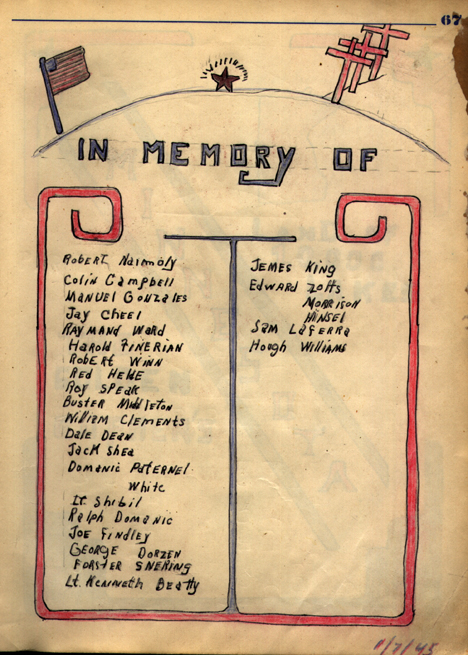 67
IN MEMORY OF
Robert Naimoly
Colin Campbell
MANUEL GONZALES
Jay CHEEL
RAYMAND WARD
HAROLD FINERIAN
ROBERT WINN
RED
Roy SPEAK
BUSTER MIDDLETON
William CLEMENTS
Dale DEAN
JACK Shea
DOMANIC PATERNEL
White
Lt. Shibil
Ralph DOMANIC
JOE FINDLEY
GEORGE DORZEN
FORSTER SNERING
Lt. Kenneth Beatty
JEMES KING
EDWARD Zotts
MORRISON
HINSEL
SAM LAFERRA
Hough Williams
11/7/45